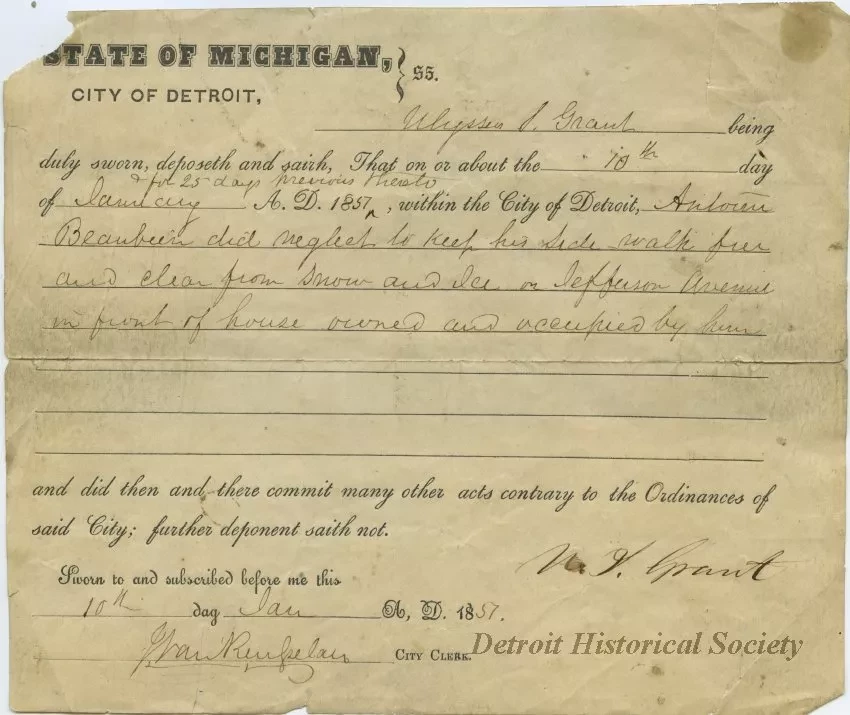 STATE OF MICHIGAN,
CITY OF DETROIT, } SS.
Ulysses S. Grant being
duly sworn, deposeth and saith, That on or about the 10th day
& for 25 days previous thereto
of January A. D. 1851, within the City of Detroit, Antoine
Beaubien did neglect to keep his side walk free
and clear from snow and Ice on Jefferson Avenue
in front of house owned and occupied by him
and did then and there commit many other acts contrary to the Ordinances of
said City; further deponent saith not.
U. S. Grant
Sworn to and subscribed before me this
10th day Jan A, D. 1851.
CITY CLERK.
Detroit Historical Society